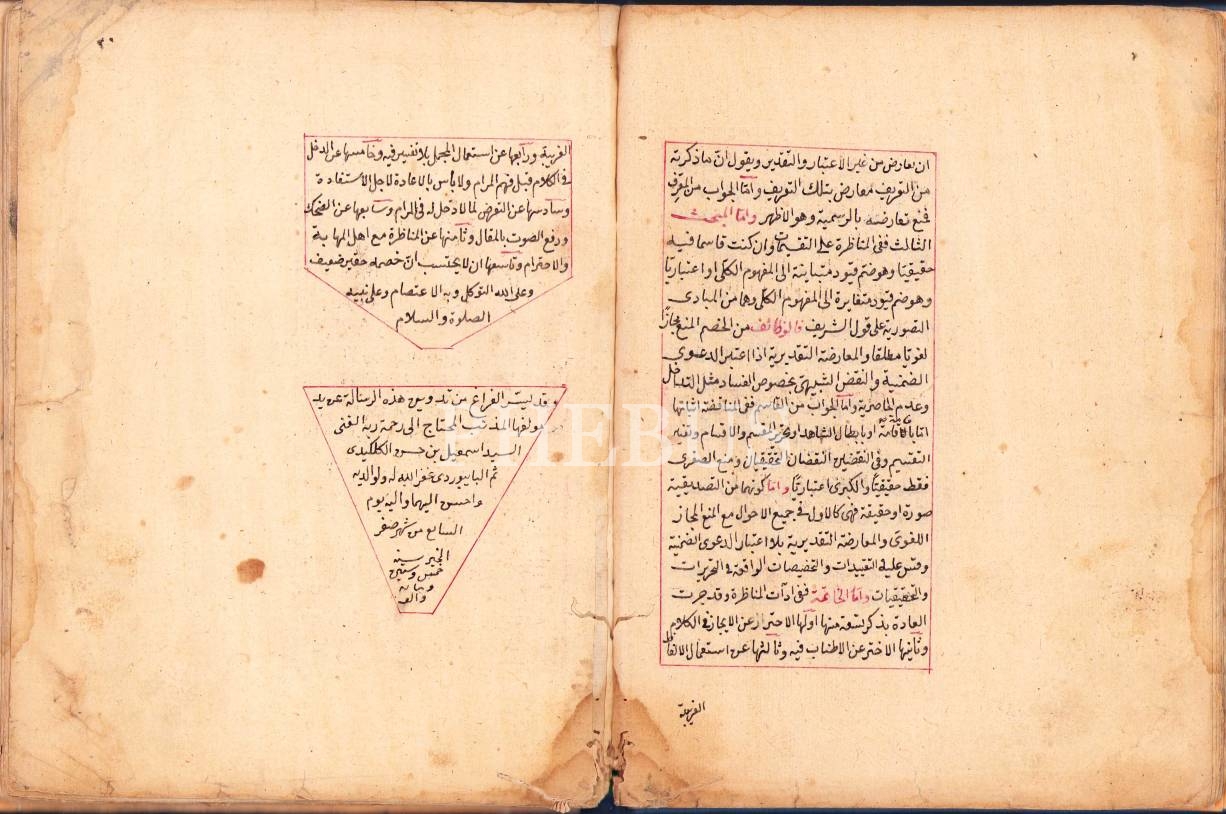 ان يعارض من غير الاعتبار والتقدير ويقول ان ما ذكرته
من التعريف لمعارض بتلك التعريف واما الجواب من المعرف
فمنع تعارضه بالرسمية وهو الاظهر واما المبحث
الثالث ففى المناظرة على التقسيمات وان كنت قاسما فيه
حقيقيا وهو ضم قيود متباينة الى المفهوم الكلى او اعتباريا
وهو ضم قيود متغايرة الى المفهوم الكلى وهما من المبادى
التصورية على قول الشريف فالوظائف من الخصم المنع مجازا
لغويا مطلقا والمعارضة التقديرية اذا اعتبر الدعوى
الضمنية والنقض الشبيهى بخصوص الفساد مثل التداخل
وعدم الحاصرية واما الجواب من القاسم ففى المناقضة اثباتها
اما او بابطال الشاهد او بتحرير المقسم والاقسام وتغيير
التقسيم وفى النقضين النقضان الحقيقيان ومنع الصغرى
فقط حقيقيا والكبرى اعتباريا واما كونهما من التصديقية
صورة او حقيقة فهى كالاول فى جميع الاحوال مع المنع المجاز
اللغوى والمعارضة التقديرية بلا اعتبار الدعوى الضمنية
وقس عليه التقييدات والتخصيصات الواقعة فى التحريرات
والتحقيقات واما الخاتمة ففى اداب المناظرة وقد جرت
العادة بذكر تسعة منها اولها الاحتراز عن الايجاز فى الكلام
وثانيها الاحتر عن الاطناب فيه وثالثها عن استعمال الالفاظ
الغريبة
الغريبة ورابعها عن استعمال المجمل بلا تفسير فيه وخامسها عن الدخل
فى الكلام قبل فهم المرام ولا بأس بالاعادة لاجل الاستفادة
وسادسها عن التعرض لما لا دخل له فى المرام وسابعها عن الضحك
ورفع الصوت بالمقال وثامنها عن المناظرة مع اهل المهابة
والاحترام وتاسعها ان لا يحتسب ان خصمه حقير ضعيف
وعلى الله التوكل وبه الاعتصام وعلى نبيه
الصلوة والسلام
قد يسر الفراغ من تدوين هذه الرسالة عن يد
مؤلفها المذنب المحتاج الى رحمة ربه الغنى
السيد اسمعيل بن حسن الكلكيدى
ثم البايبوردى غفر الله له ولوالديه
واحسن اليهما واليه يوم
السابع من شهر صفر
الخير سنة
خمس وستين
ومايه
والف
PHEBUS